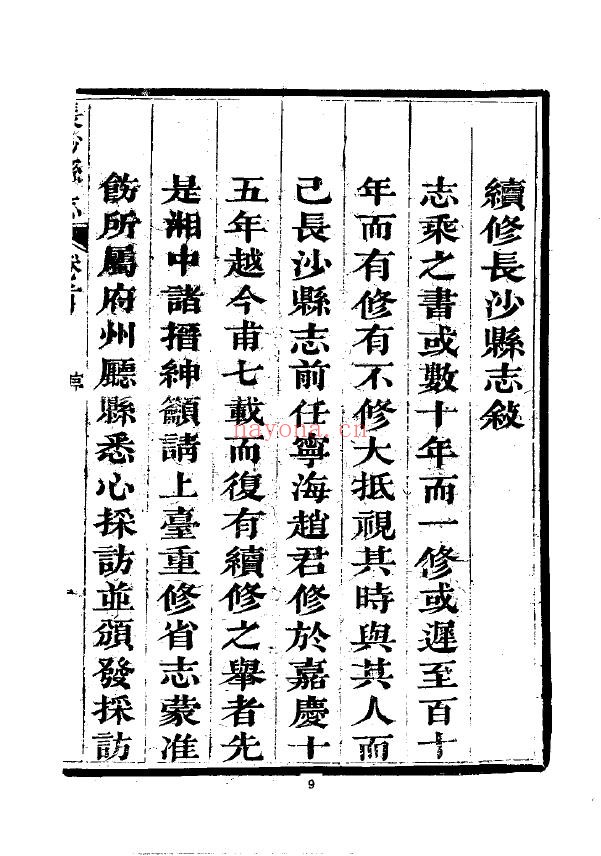 續修長沙縣志敘
志乘之書或數十年而一修或遲至百十
年而有修有不修大抵視其時與其人而
已長沙縣志前任寧海趙君修於嘉慶十
五年越今甫七載而復有續修之舉者先
是湘中諸搢紳籲請上臺重修省志蒙准
飭所屬府州廳縣悉心採訪並頒發採訪
長沙縣志
hayona.cn
9